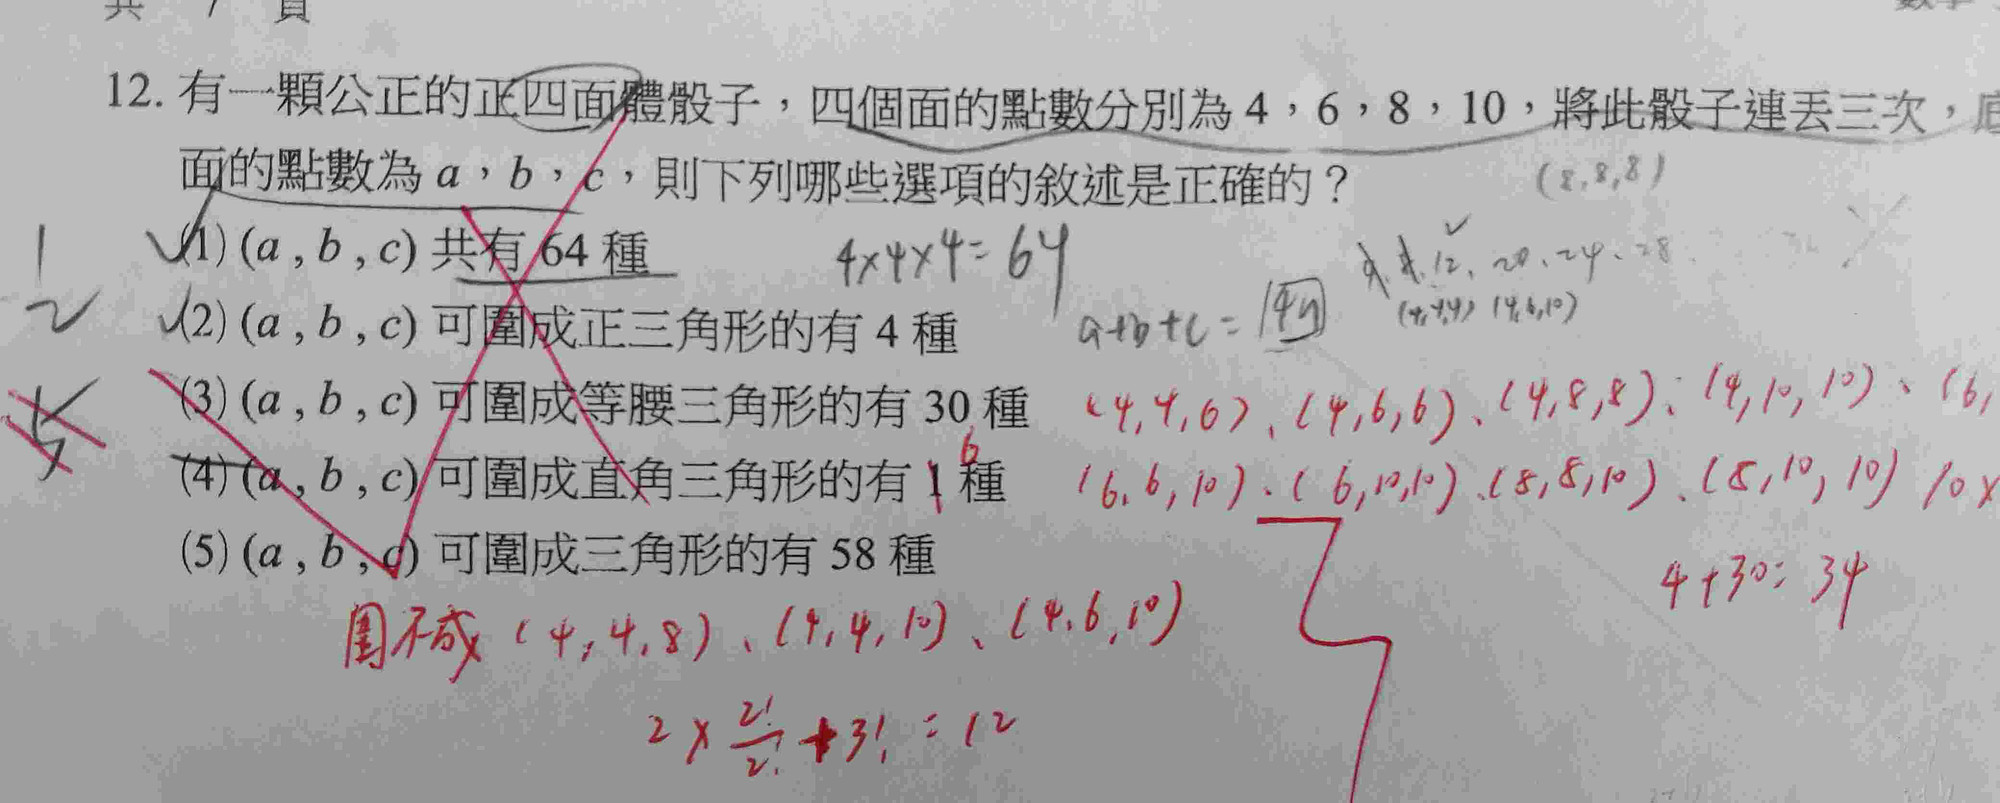 共 7 頁
12. 有一顆公正的正四面體骰子，四個面的點數分別為 4，6，8，10，將此骰子連丟三次，底
面的點數為 a，b，c，則下列哪些選項的敘述是正確的？
(8,8,8)
(1) (a , b , c) 共有 64 種
4×4×4=64
12、20、24、28
(2) (a , b , c) 可圍成正三角形的有 4 種
a+b+c =
(4,4,4) (4,6,10)
(3) (a , b , c) 可圍成等腰三角形的有 30 種
(4,4,6)、(4,6,6)、(4,8,8)、(4,10,10)、(6,
(4) (a , b , c) 可圍成直角三角形的有 1 種
6
(6,6,10)、(6,10,10)、(8,8,10)、(8,10,10) 10×
(5) (a , b , c) 可圍成三角形的有 58 種
4+30=34
圍不成 (4,4,8)、(4,4,10)、(4,6,10)
2×2!/2!+3!=12
1
2
5